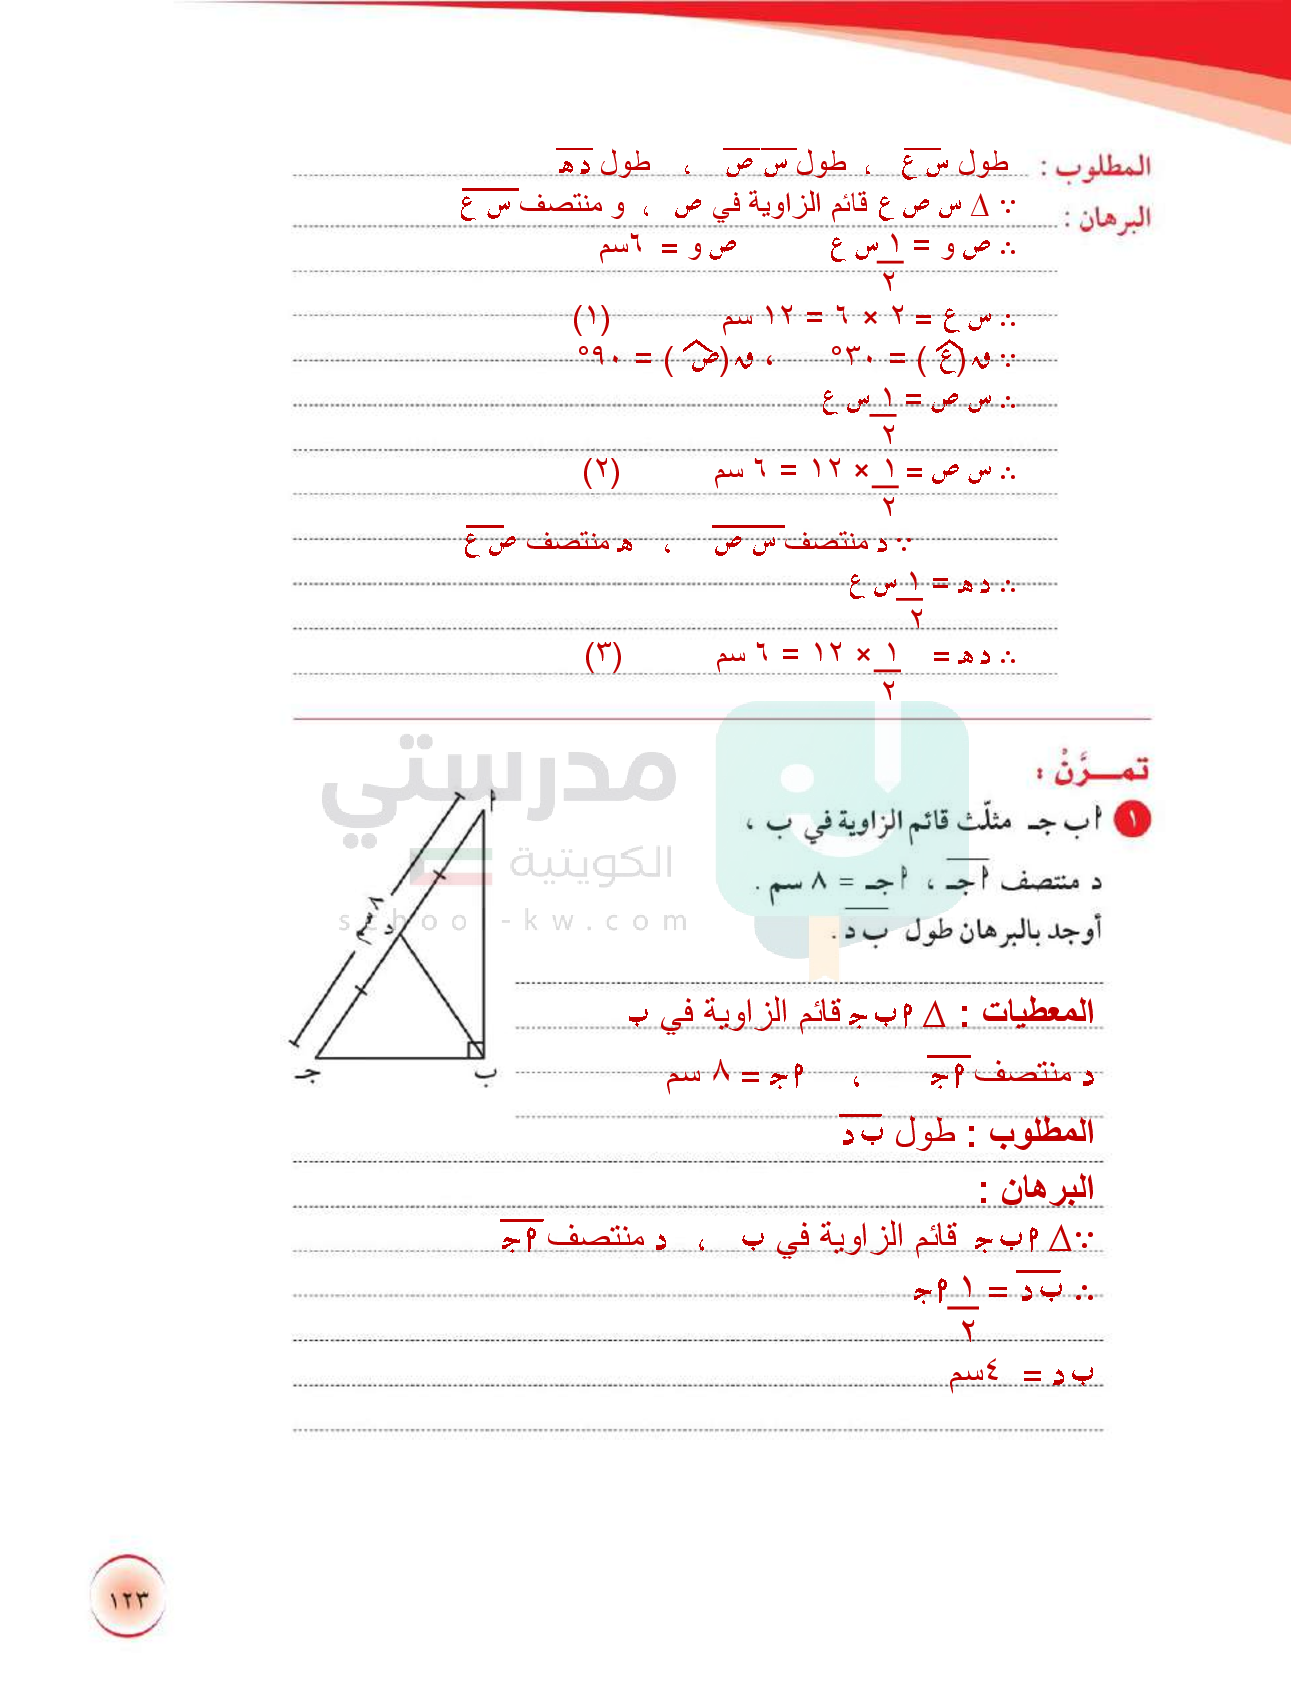 المطلوب : طول س ع ، طول س ص ، طول د هـ
البرهان : ∵ Δ س ص ع قائم الزاوية في ص ، و منتصف س ع
∴ ص و = ١/٢ س ع ص و = ٦سم
∴ س ع = ٢ × ٦ = ١٢ سم (١)
∵ ق(ع) = ٣٠° ، ق(ص) = ٩٠°
∴ س ص = ١/٢ س ع
∴ س ص = ١/٢ × ١٢ = ٦ سم (٢)
∵ د منتصف س ص ، هـ منتصف ص ع
∴ د هـ = ١/٢ س ع
∴ د هـ = ١/٢ × ١٢ = ٦ سم (٣)
تمـــرَّنْ :
١ أ ب جـ مثلّث قائم الزاوية في ب ،
د منتصف أ جـ ، أ جـ = ٨ سم .
أوجد بالبرهان طول ب د .
أ
٨سم
د
جـ
ب
مدرستي
الكويتية
school-kw.com
المعطيات : Δ أ ب جـ قائم الزاوية في ب
د منتصف أ جـ ، أ جـ = ٨ سم
المطلوب : طول ب د
البرهان :
∵ Δ أ ب جـ قائم الزاوية في ب ، د منتصف أ جـ
∴ ب د = ١/٢ أ جـ
ب د = ٤سم
١٢٣